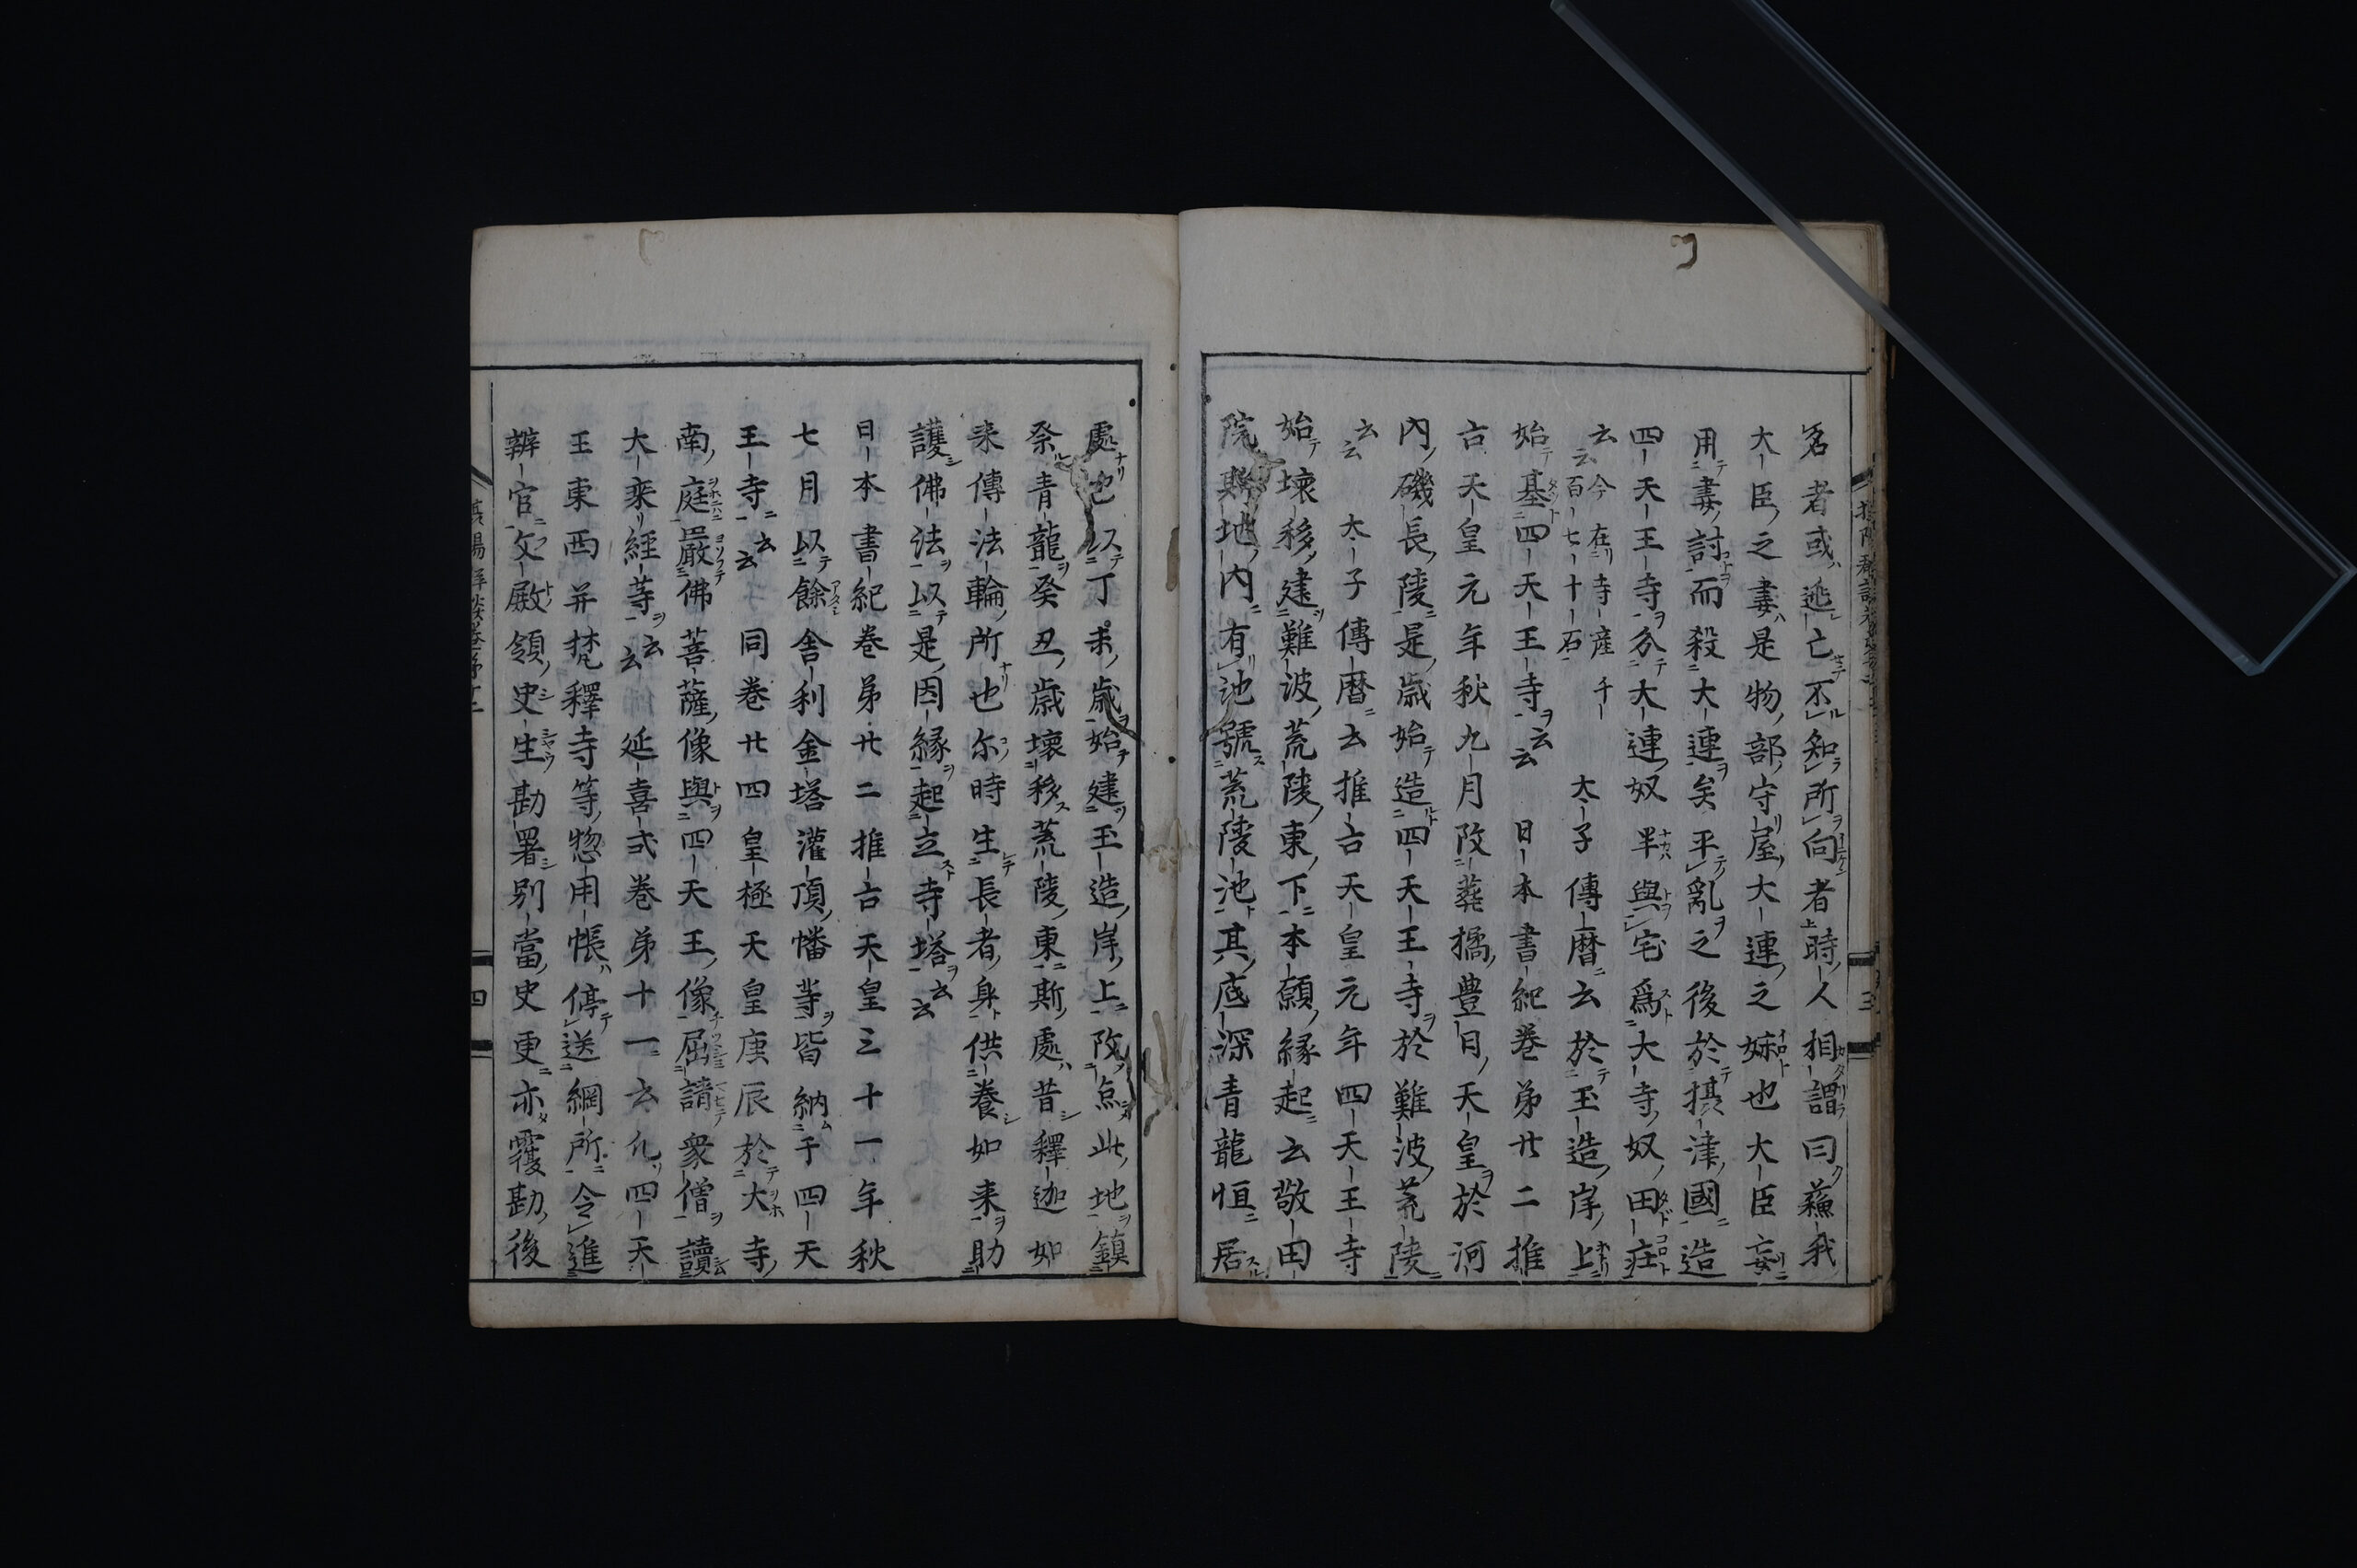 名者或逃亡不知所向者時人相謂曰蘓我
大臣之妻是物部守屋大連之妹也大臣妄
用妻討而殺大連矣平亂之後於攝津國造
四天王寺分大連奴半與宅爲大寺奴田庄
云云今在寺産千百七十石 太子傳暦云於玉造岸上
始基四天王寺云云 日本書紀巻第廿二推
古天皇元年秋九月改葬橘豊日天皇於河
内磯長陵是歳始造四天王寺於難波荒陵
云云 太子傳暦云推古天皇元年四天王寺
始壊移建難波荒陵東下本願縁起云敬田
院斯地内有池號荒陵池其底深青龍恒居
三
處也以丁未歳始建玉造岸上改点此地鎮
祭青龍癸丑歳壊移荒陵東斯處昔釋迦如
来傳法輪所也尓時生長者身供養如来助
護佛法以是因縁起立寺塔云云
日本書紀巻第廿二推古天皇三十一年秋
七月以餘舎利金塔灌頂幡等皆納于四天
王寺云云 同巻廿四皇極天皇庚辰於大寺
南庭嚴佛菩薩像與四天王像屈請衆僧讀
大乗経等云云 延喜式巻第十一云凢四天
王東西并梵釋寺等惣用帳停送綱所令進
辨官文殿領史生勘署別當史更亦覆勘後
四